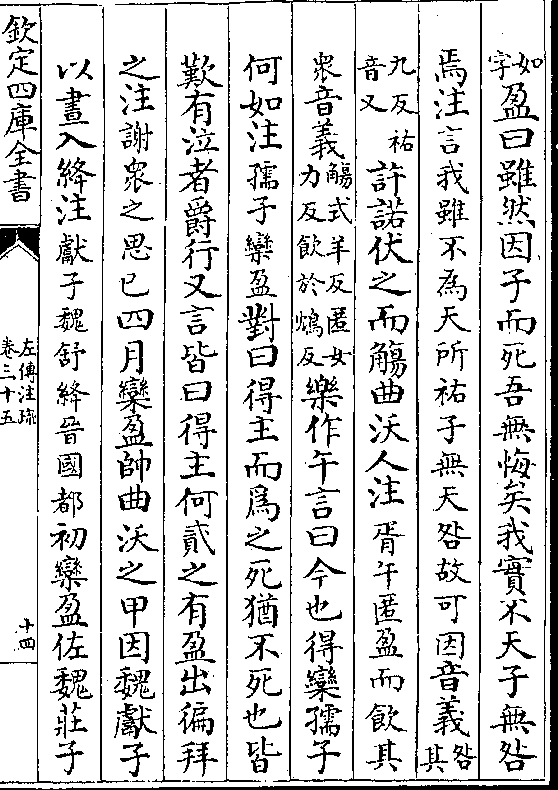 如字盈曰雖然因子而死吾無悔矣我實不天子無咎
焉注言我雖不為天所祐子無天咎故可因音義咎其
九反祐音又許諾伏之而觴曲沃人注胥午匿盈而飲其
衆音義觴式羊反匿女力反飲於鴆反樂作午言曰今也得欒孺子
何如注孺子欒盈對曰得主而爲之死猶不死也皆
歎有泣者爵行又言皆曰得主何貳之有盈出徧拜
之注謝衆之思已四月欒盈帥曲沃之甲因魏獻子
以晝入絳注獻子魏舒絳晉國都初欒盈佐魏莊子
欽定四庫全書
左傳注疏
卷三十五
十四